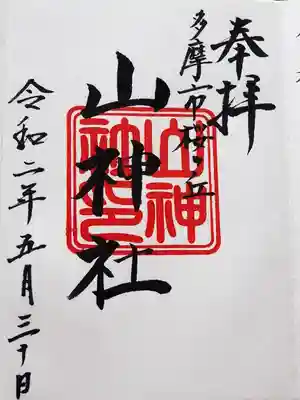 奉拝
多摩市桜ヶ丘
山神社
山神
神印
令和二年五月三十日